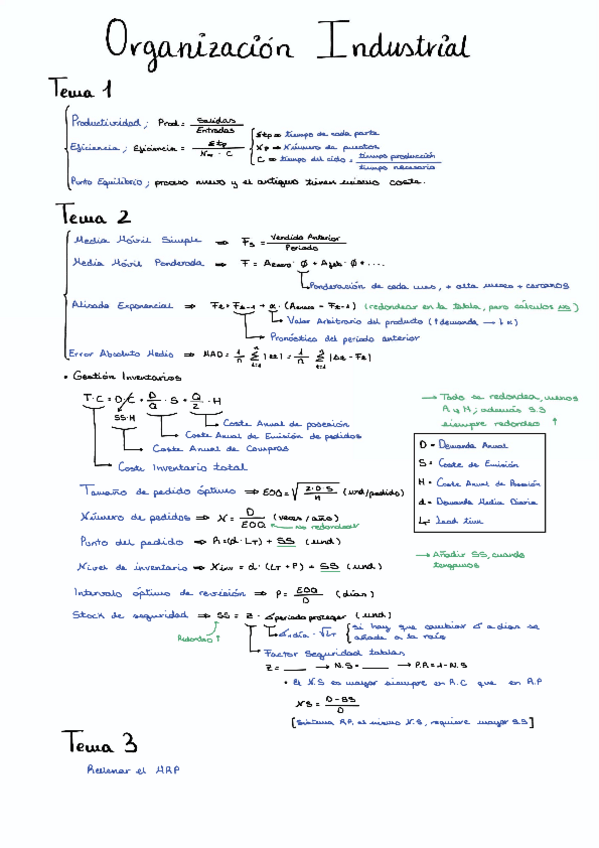 Organización Industrial
Tema 1
Productividad; Prod = Salidas / Entradas
Eficiencia; Eficiencia = Σtp / Nm · C
Σtp ⇒ tiempo de cada parte
Xp ⇒ Número de puestos
C ⇒ tiempo del ciclo = tiempo producción / tiempo necesario
Punto Equilibrio; proceso nuevo y el antiguo tienen mismo coste.
Tema 2
Media Móvil Simple ⇒ Fs = Vendido Anterior / Periodo
Media Móvil Ponderada ⇒ F = Aenero · Ø + Afeb · Ø + ....
Ponderación de cada mes, + alta meses + cercanos
Alisado Exponencial ⇒ Ft = Ft-1 + α · (Aenero - Ft-1) (redondear en la tabla, para cálculos no)
Valor Arbitrario del producto (↑demanda → ↓α)
Pronóstico del periodo anterior
Error Absoluto Medio ⇒ MAD = 1/n Σ |et| = 1/n Σ |At - Ft|
• Gestión Inventarios
T·C = D·C + D/Q · S + Q/2 · H
SS·H
Coste Anual de posesión
Coste Anual de Emisión de pedidos
Coste Anual de Compras
Coste Inventario total
→ Todo se redondea, menos
A y H; además S.S
siempre redondeo ↑
D = Demanda Anual
S = Coste de Emisión
H = Coste Anual de Posesión
d = Demanda Media Diaria
LT = Lead time
Tamaño de pedido óptimo ⇒ EOQ = √(2·D·S / H) (und/pedido)
Número de pedidos ⇒ N = D / EOQ (veces/año)
No redondear
Punto del pedido ⇒ R = (d · LT) + SS (und)
→ Añadir SS, cuando
tengamos
Nivel de inventario ⇒ Xinv = d · (LT + P) + SS (und)
Intervalo óptimo de revisión ⇒ P = EOQ / D (días)
Stock de seguridad ⇒ SS = Z · σperiodo proteger (und)
Redondeo ↑
σdía · √LT { Si hay que cambiar σ a dias se
añade a la raíz
Factor Seguridad tablas
Z = ___ → N.S = ___ → P.R = 1 - N.S
• El N.S es mayor siempre en R.C que en R.P
NS = D - SS / D
[Sistema RP, al mismo N.S, requiere mayor SS]
Tema 3
Rellenar el MRP